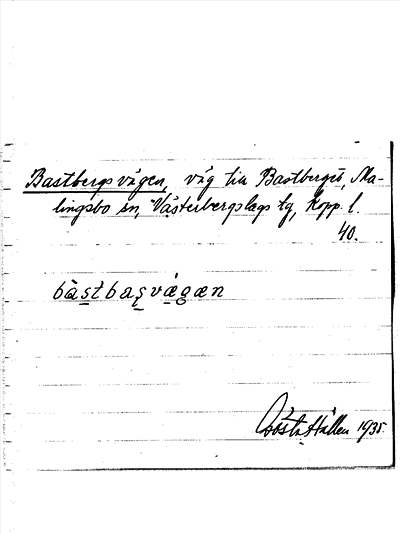 Bastbergsvägen, väg till Bastberget, Ma-
lingsbo sn, Västerbergslags tg, Kopp. l.
40.
bàstbasvägæn
Gösta Hallen 1935